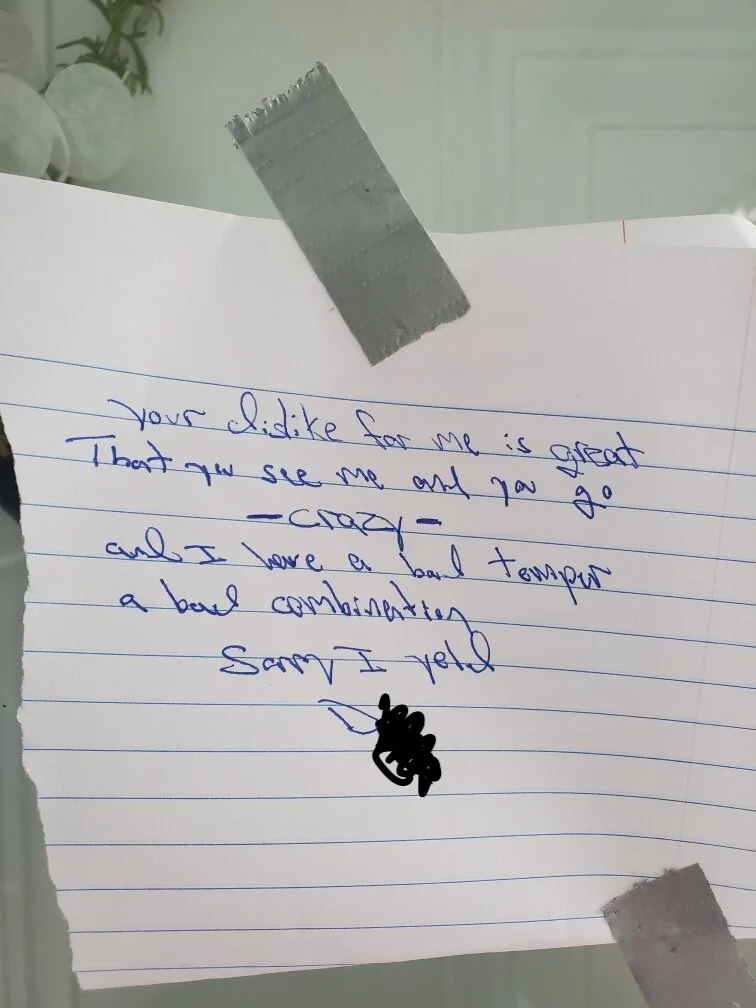 your dislike for me is great
That you see me and you go
- crazy -
and I have a bad temper
a bad combination
Sorry I yeld